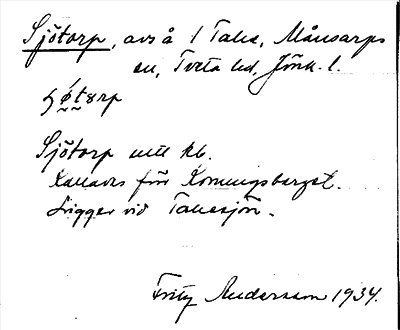 Sjötorp, avs å 1 Tahe, Månsarps
sn, Tveta hd, Jönk. l.
Sjötorp utll kb.
Kallades för Konungsberget.
Ligger vid Tahesjön.
Fritz Andersson 1934.